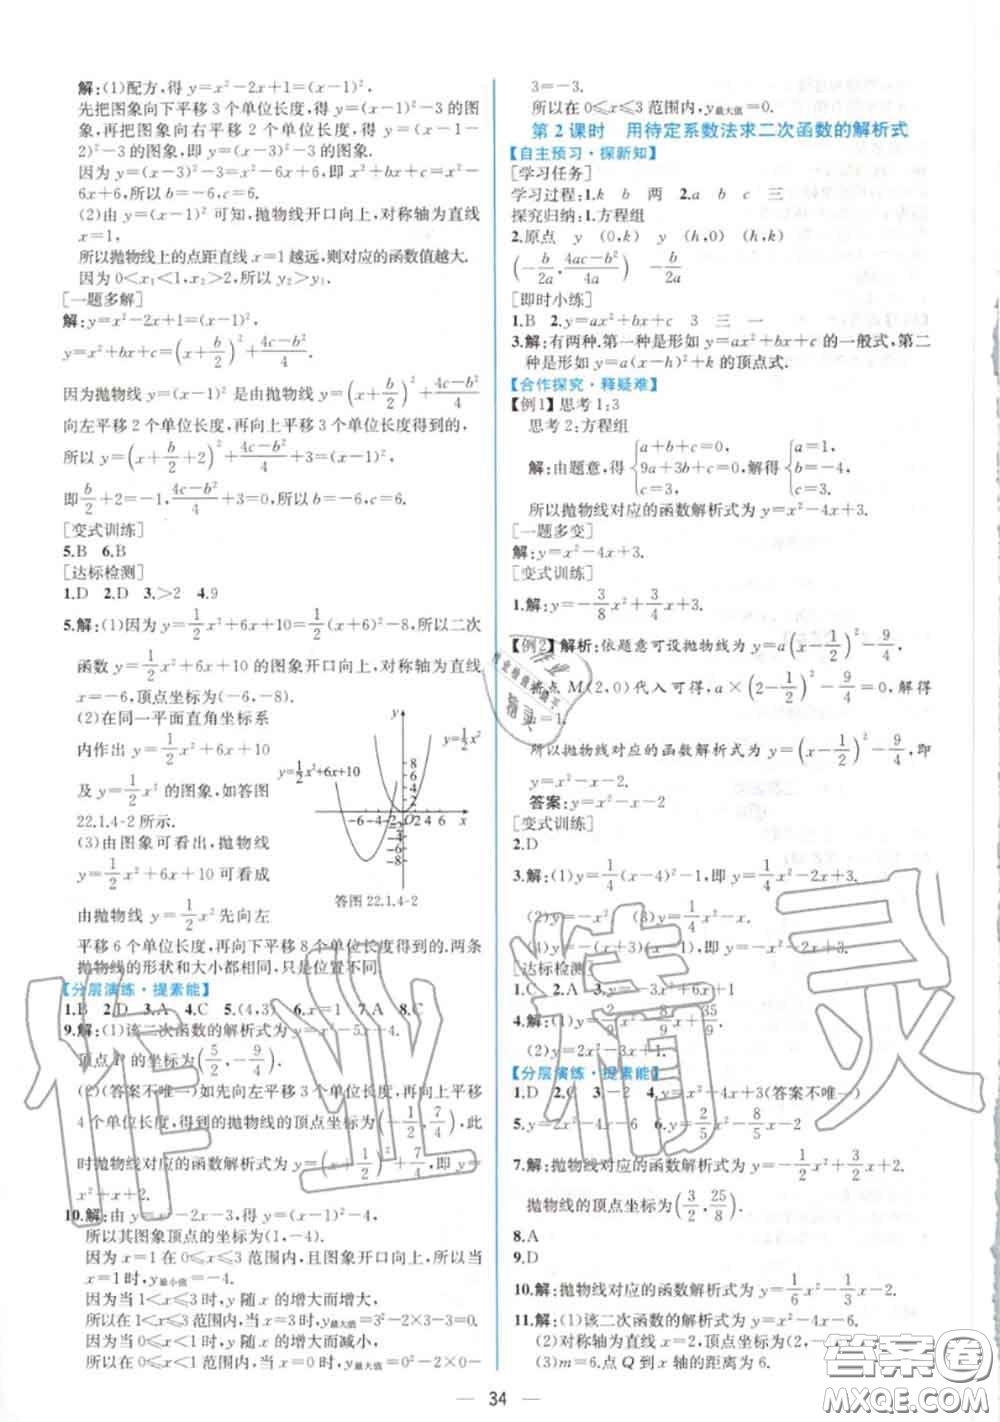 解:(1)配方,得 y=x²-2x+1=(x-1)².
先把图象向下平移 3 个单位长度,得 y=(x-1)²-3 的图象,再把图象向右平移 2 个单位长度,得 y=
(x-3)²-3 的图象,即 y=(x-3)²-3 的图象.
因为 y=(x-3)²-3=x²-6x+6,即 x²+bx+c=
x²-6x+6,所以 b=-6,c=6.
(2)由 y=(x-1)² 可知,抛物线开口向上,对称轴为直线
x=1,
所以抛物线上的点距直线 x=1 越远,则对应的函数值越大.
因为 0<x₁<1,x₂>2,所以 y₂>y₁.
[一题多解]
解:y=x²-2x+1=(x-1)².
y=x²+bx+c=(x+b/2)²+(4c-b²)/4
因为抛物线 y=(x-1)² 是由抛物线 y=(x+b/2)²+(4c-b²)/4
向左平移 2 个单位长度,再向上平移 3 个单位长度得到的,
所以 y=(x+b/2+2)²+(4c-b²)/4+3=(x-1)²,
即 b/2+2=-1,(4c-b²)/4+3=0,所以 b=-6,c=6.
[变式训练]
5.B 6.B
[达标检测]
1.D 2.D 3.>2 4.9
5.解:(1)因为 y=1/2x²+6x+10=1/2(x+6)²-8,所以二次
函数 y=1/2x²+6x+10 的图象开口向上,对称轴为直线
x=-6,顶点坐标为(-6,-8).
(2)在同一平面直角坐标系
内作出 y=1/2x²+6x+10
及 y=1/2x² 的图象,如答图
22.1.4-2 所示.
(3)由图象可看出,抛物线
y=1/2x²+6x+10 的图象是
由抛物线 y=1/2x² 先向左
平移 6 个单位长度,再向下平移 8 个单位长度得到的.两条
抛物线的形状和大小都相同,只是位置不同.
y=1/2x²
y=1/2x²+6x+10
答图 22.1.4-2
【分层演练·提素能】
1.B 2.D 3.A 4.C 5.(4,3) 6.x=1 7.A 8.C
9.解:(1)该二次函数的解析式为 y=x²-5x+4.
顶点 P 的坐标为(5/2,-9/4).
(2)(答案不唯一)如先向左平移 3 个单位长度,再向上平移
4 个单位长度,得到的抛物线的顶点坐标为(-1/2,7/4),此
时抛物线对应的函数解析式为 y=(x+1/2)²+7/4,即 y=
x²+x+2.
10.解:由 y=x²-2x-3,得 y=(x-1)²-4,
所以其图象顶点的坐标为(1,-4).
因为 x=1 在 0≤x≤3 范围内,且图象开口向上,所以当
x=1 时,y最小值=-4.
因为当 1<x≤3 时,y 随 x 的增大而增大,
所以当 1<x≤3 时,y最大值=3²-2×3-3=0.
因为当 0≤x<1 时,y 随 x 的增大而减小,
所以当 0≤x<1 时,y最大值=0²-2×0-
3=-3.
所以在 0≤x≤3 范围内,y最大值=0.
第 2 课时 用待定系数法求二次函数的解析式
【自主预习·探新知】
[学习任务]
学习过程:1.k b 两 2.a b c 三
探究归纳:1.方程组
2.原点 y (0,k) y (h,0) (h,k)
(-b/2a,(4ac-b²)/4a) -b/2a
[即时小练]
1.B 2.y=ax²+bx+c 3 三 一
3.解:有两种.第一种是形如 y=ax²+bx+c 的一般式,第二
种是形如 y=a(x-h)²+k 的顶点式.
【合作探究·释疑难】
【例1】思考 1:3
思考 2:方程组
解:由题意,得{a+b+c=0,9a+3b+c=0,c=3.解得{a=1,b=-4,c=3.
所以抛物线对应的函数解析式为 y=x²-4x+3.
[一题多变]
解:y=x²-4x+3.
[变式训练]
1.解:y=-3/8x²+3/4x+3.
【例2】解析:依题意可设抛物线为 y=a(x-1/2)²-9/4,
将点 M(2,0)代入可得,a×(2-1/2)²-9/4=0,解得
a=1.
所以抛物线对应的函数解析式为 y=(x-1/2)²-9/4,即
y=x²-x-2.
答案:y=x²-x-2
[变式训练]
2.D
3.解:(1)y=1/4(x-4)²-1,即 y=1/4x²-2x+3.
(4)y=-(x+3)(x-1),即 y=-x²-2x+3.
[达标检测]
1.C 2.A
(2)y=2x²
【分层演练·提素能】
1.D 2.C 3.-2 4.y=x²-1(答案不唯一)
5.y=2x²-4x-6
7.解:抛物线对应的函数解析式为 y=-1/2x²+3/2x+2.
抛物线的顶点坐标为(3/2,25/8).
8.A
9.D
10.解:抛物线对应的函数解析式为 y=1/6x²-1/3x-1/2.
11.解:(1)该二次函数的解析式为 y=x²-4x-6.
(2)对称轴为直线 x=2,顶点坐标为(2,
(3)m=6.点 Q 到 x 轴的距离为 6.
34
作业精灵
答案圈
MXQE.COM